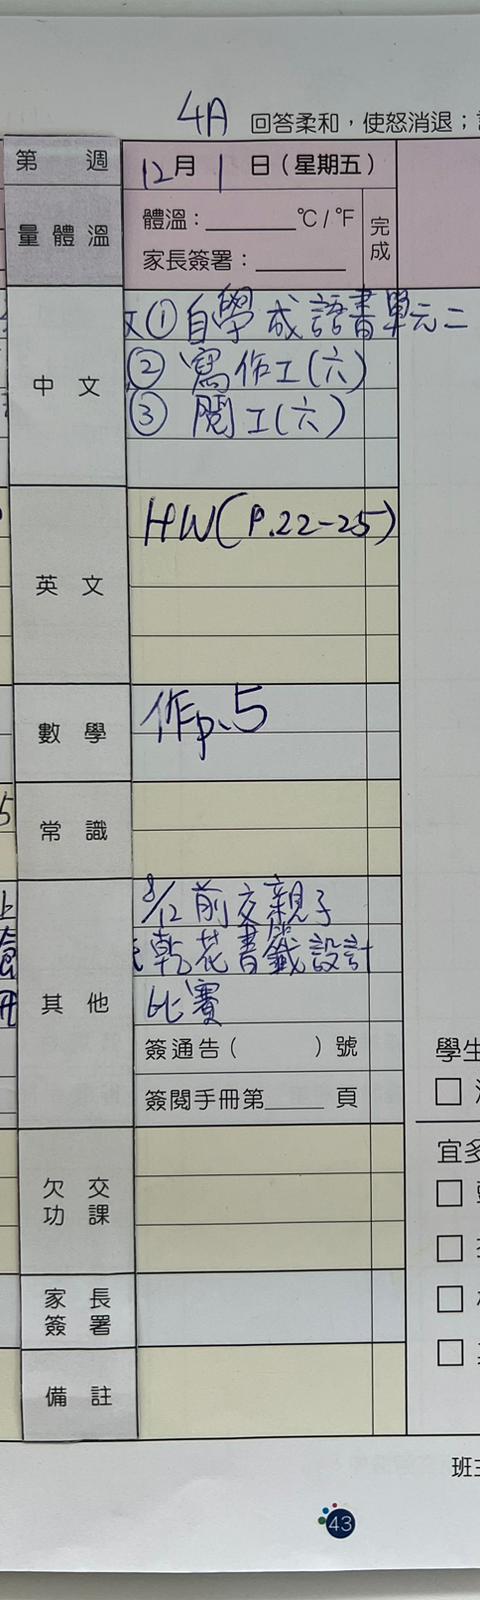 4A 回答柔和，使怒消退；
第 週 12月 1 日（星期五）
量體溫 體溫：______℃/℉ 完成
家長簽署：______
中文 ①自學成語書單元二
②寫作工(六)
③閱工(六)
英文 HW(P.22-25)
數學 作p.5
常識
其他 8/12前交親子
乾花書籤設計
比賽
簽通告（ ）號
簽閱手冊第_____頁
欠交功課
家長簽署
備註
學生
宜多
班主
43